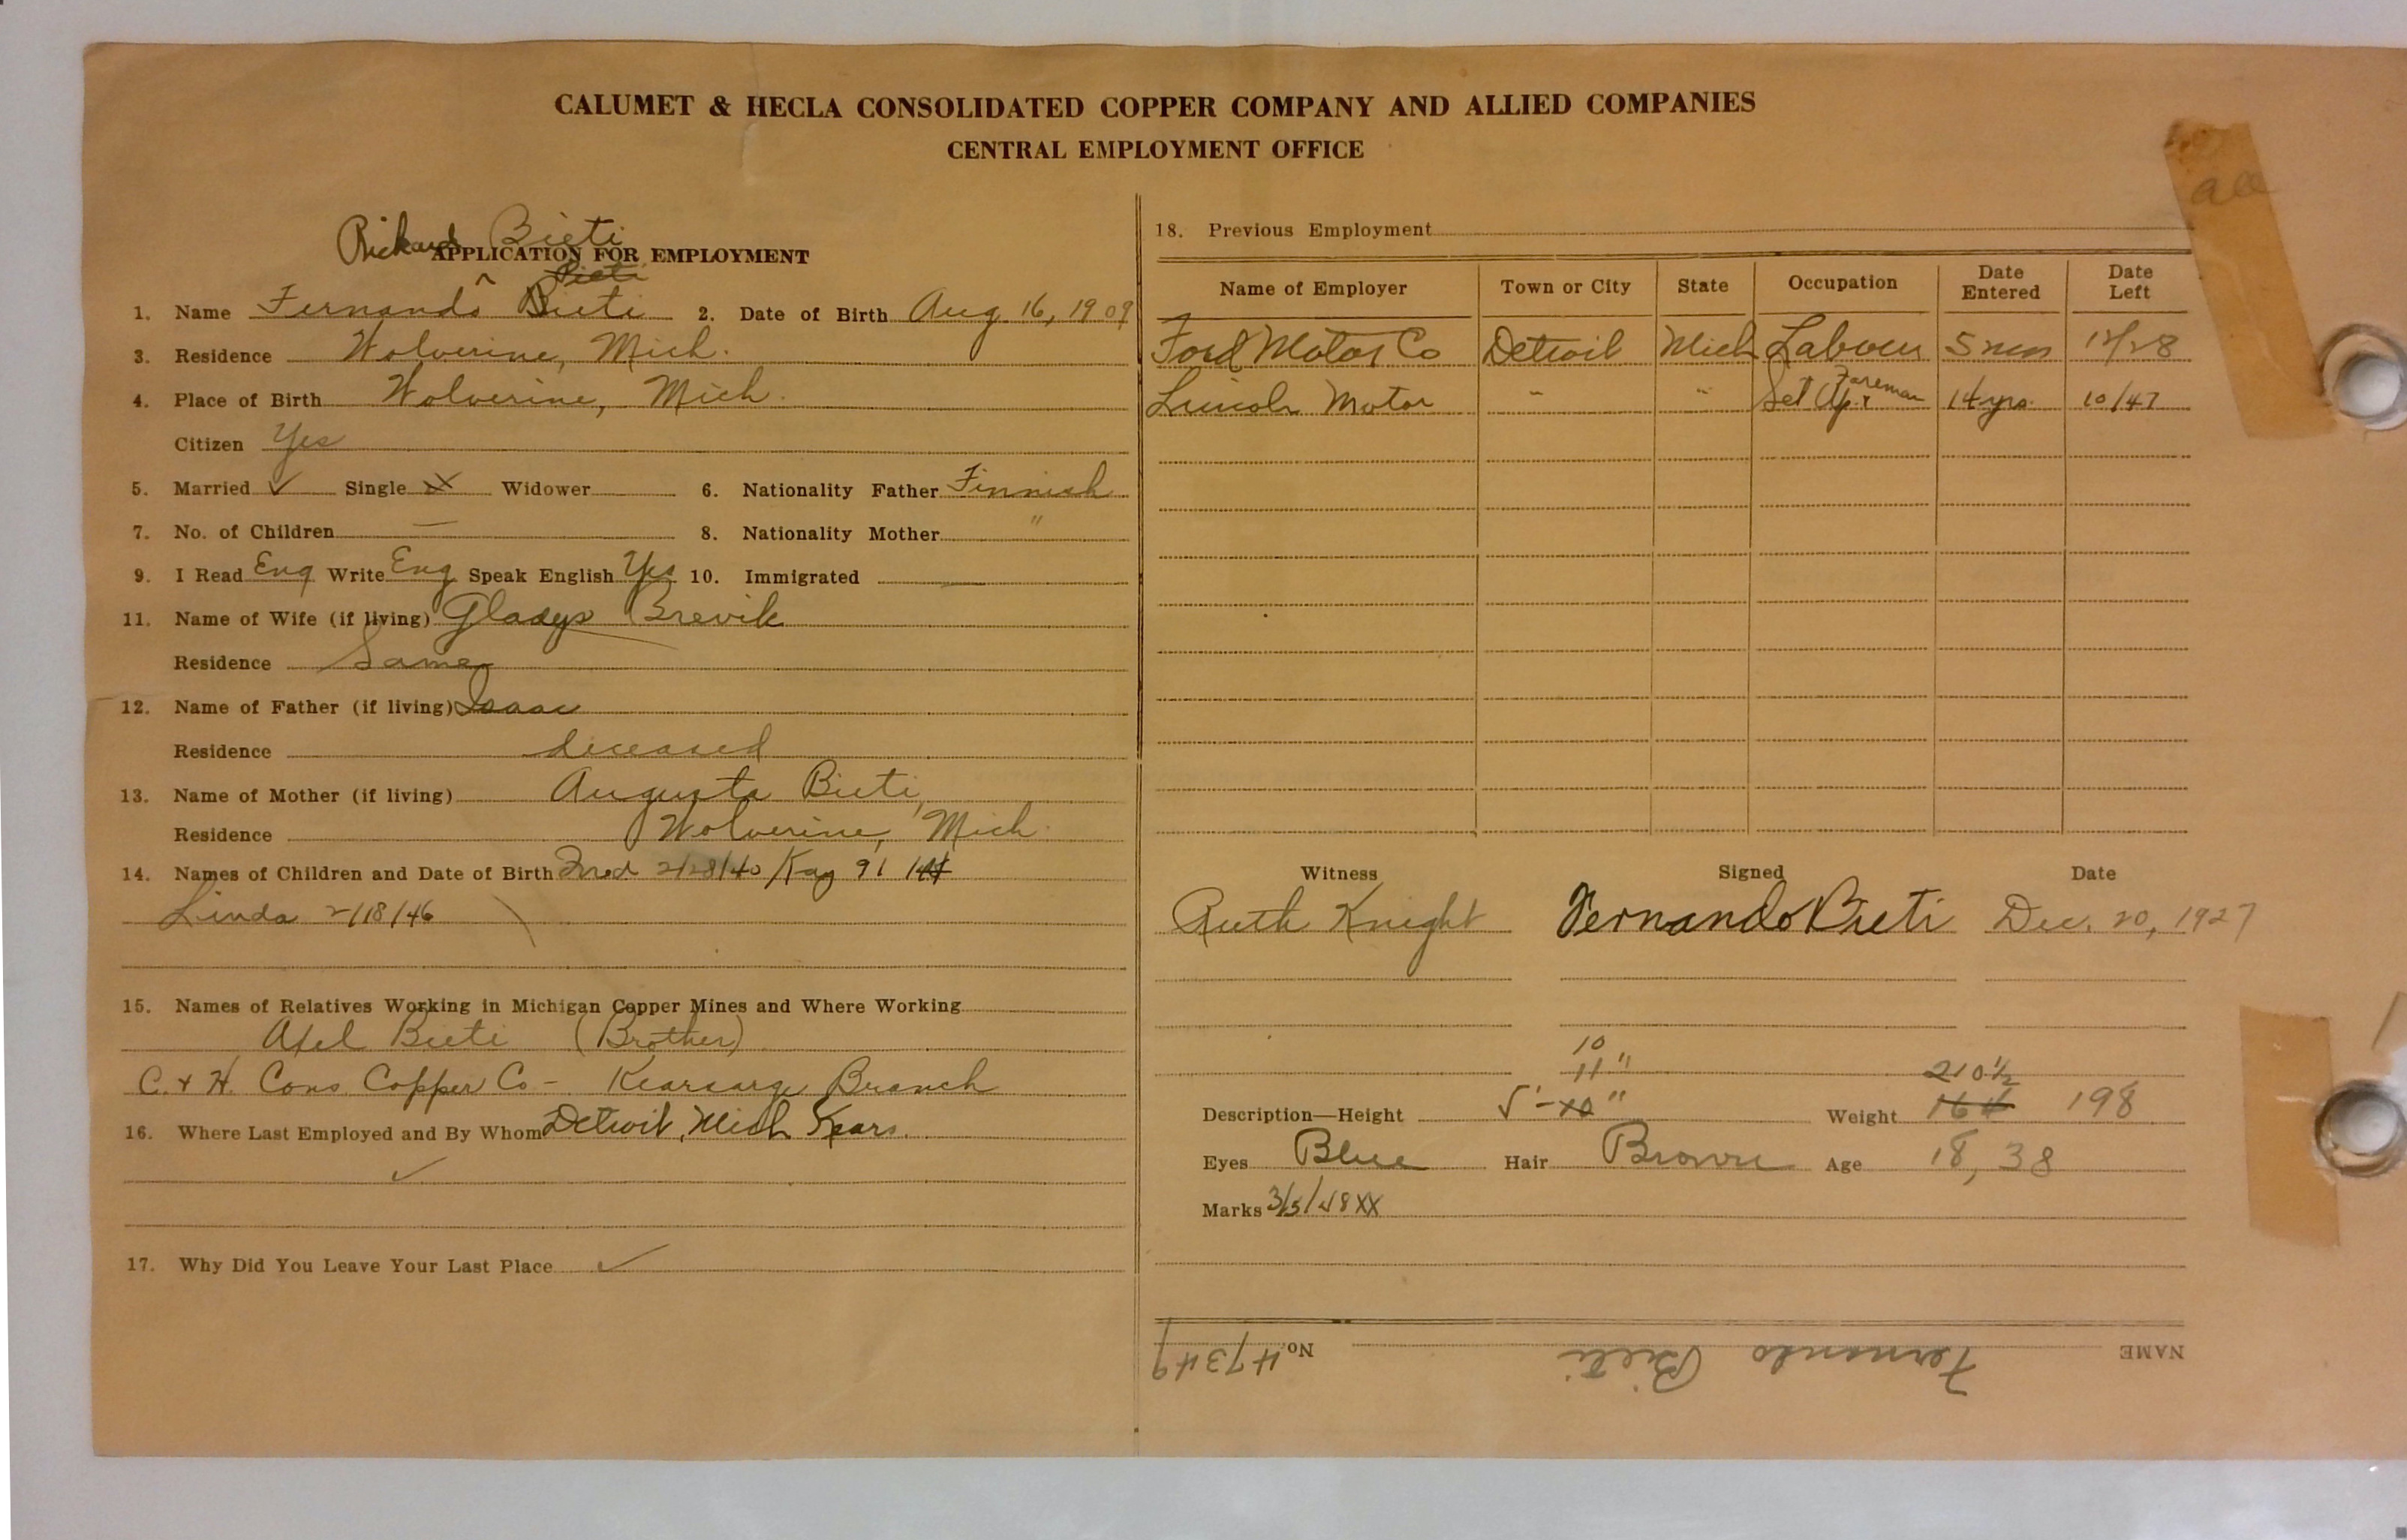 CALUMET & HECLA CONSOLIDATED COPPER COMPANY AND ALLIED COMPANIES
CENTRAL EMPLOYMENT OFFICE
Richard Bieti
APPLICATION FOR EMPLOYMENT
1. Name Fernando ^ Bieti 2. Date of Birth Aug. 16, 1909
3. Residence Wolverine, Mich.
4. Place of Birth Wolverine, Mich.
Citizen Yes
5. Married ✓ Single X Widower 6. Nationality Father Finnish
7. No. of Children — 8. Nationality Mother "
9. I Read Eng Write Eng Speak English Yes 10. Immigrated —
11. Name of Wife (if living) Gladys Brevik
Residence Same
12. Name of Father (if living) Isaac
Residence deceased
13. Name of Mother (if living) Augusta Bieti,
Residence Wolverine, Mich.
14. Names of Children and Date of Birth Fred 2/28/40 Kay 9/ /44
Linda 2/18/46
15. Names of Relatives Working in Michigan Copper Mines and Where Working
Axel Bieti (Brother)
C. & H. Cons. Copper Co - Kearsarge Branch
16. Where Last Employed and By Whom Detroit, Mich
✓
17. Why Did You Leave Your Last Place ✓
18. Previous Employment
Name of Employer Town or City State Occupation Date Entered Date Left
Ford Motor Co Detroit Mich Labour 5 mos 12/28
Lincoln Motor " " Set Up Foreman 14 yrs. 10/47
Witness Signed Date
Ruth Knight Fernando Bieti Dec. 20, 1927
10
11"
210 1/2
Description—Height 5'-10" Weight 164 198
Eyes Blue Hair Brown Age 18, 38
Marks 3/5/48 XX
NAME Fernando Bieti No. 47349